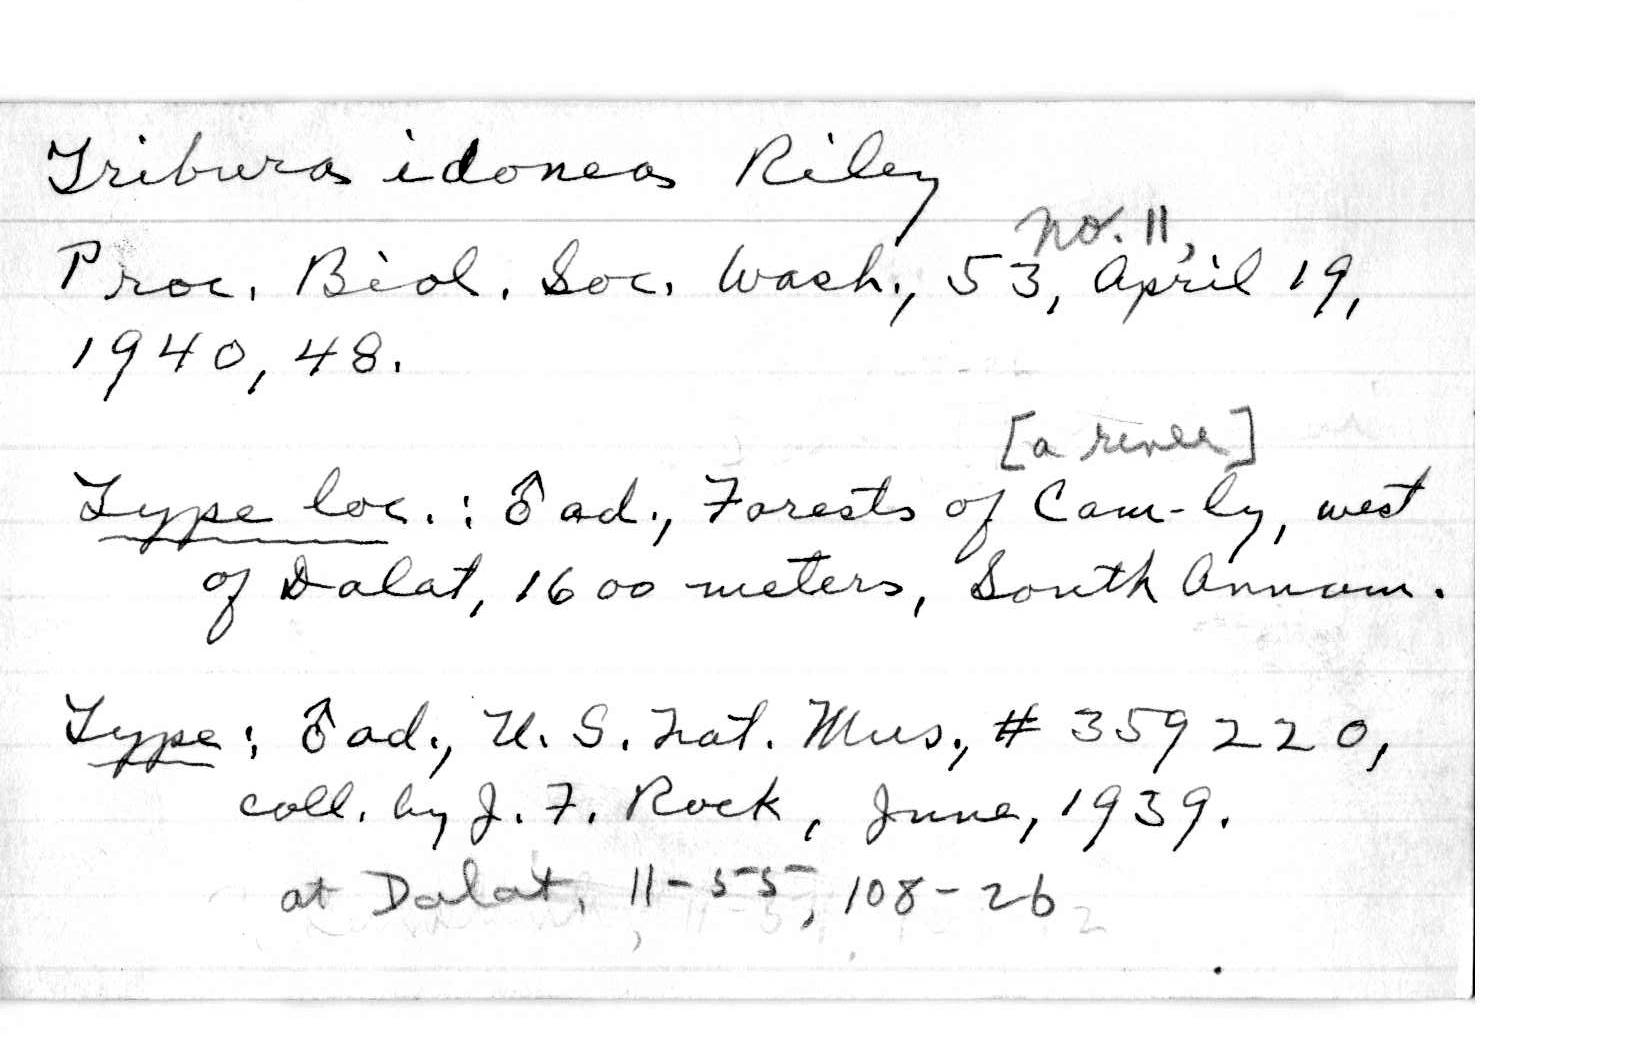 Tribura idonea Riley
no. 11,
Proc. Biol. Soc. Wash., 53, April 19,
1940, 48.
[a river]
Type loc. : ♂ ad., Forests of Cam-ly, west
of Dalat, 1600 meters, South Annam.
Type : ♂ ad., U. S. Nat. Mus., # 359220,
coll. by J. F. Rock, June, 1939.
at Dalat, 11-55, 108-26